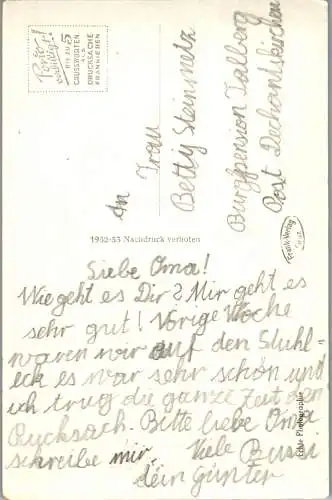 Porto verbilligt!
BIS ZU 5
GRUSSWORTEN
ALS
DRUCKSACHE
FRANKIEREN
An Frau
Betty Steinmetz
Burgpension Falberg
Post Dechantskirchen
1952-53 Nachdruck verboten
Frank-Verlag
Graz
Echte Photographie
Liebe Oma!
Wie geht es Dir? Mir geht es
sehr gut! Vorige Woche
waren wir auf den Stuhl-
eck es war sehr schön und
ich trug die ganze Zeit den
Rucksach. Bitte liebe Oma
schreibe mir.
Viele Bussi
dein günter